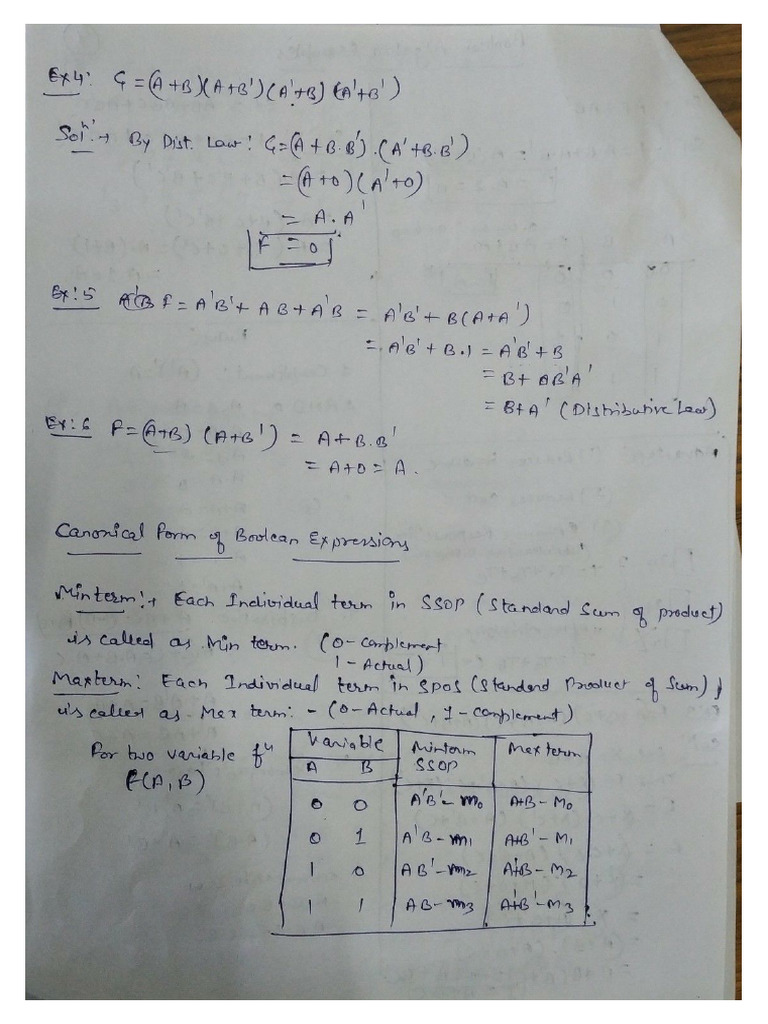 Ex4: G = (A+B)(A+B')(A'+B)(A'+B')
Solⁿ:→ By Dist. Law: G=(A+B.B').(A'+B.B')
= (A+0)(A'+0)
= A.A'
F = 0
Ex:5 F = A'B'+AB+A'B = A'B'+B(A+A')
= A'B'+B.1 = A'B'+B
= B+AB'A'
= B+A' (Distributive Law)
Ex:6 F=(A+B)(A+B') = A+B.B'
= A+0=A.
Canonical Form of Boolean Expressions
Minterm:→ Each Individual term in SSOP (Standard Sum of product)
is called as Min term. (0-Complement
1-Actual)
Maxterm: Each Individual term in SPOS (Standard Product of Sum)
is called as Max term:- (0-Actual, 1-Complement)
For two variable fⁿ
F(A,B)
Variable Minterm Maxterm
A B SSOP
0 0 A'B'-m0 A+B-M0
0 1 A'B-m1 A+B'-M1
1 0 AB'-m2 A'+B-M2
1 1 AB-m3 A'+B'-M3